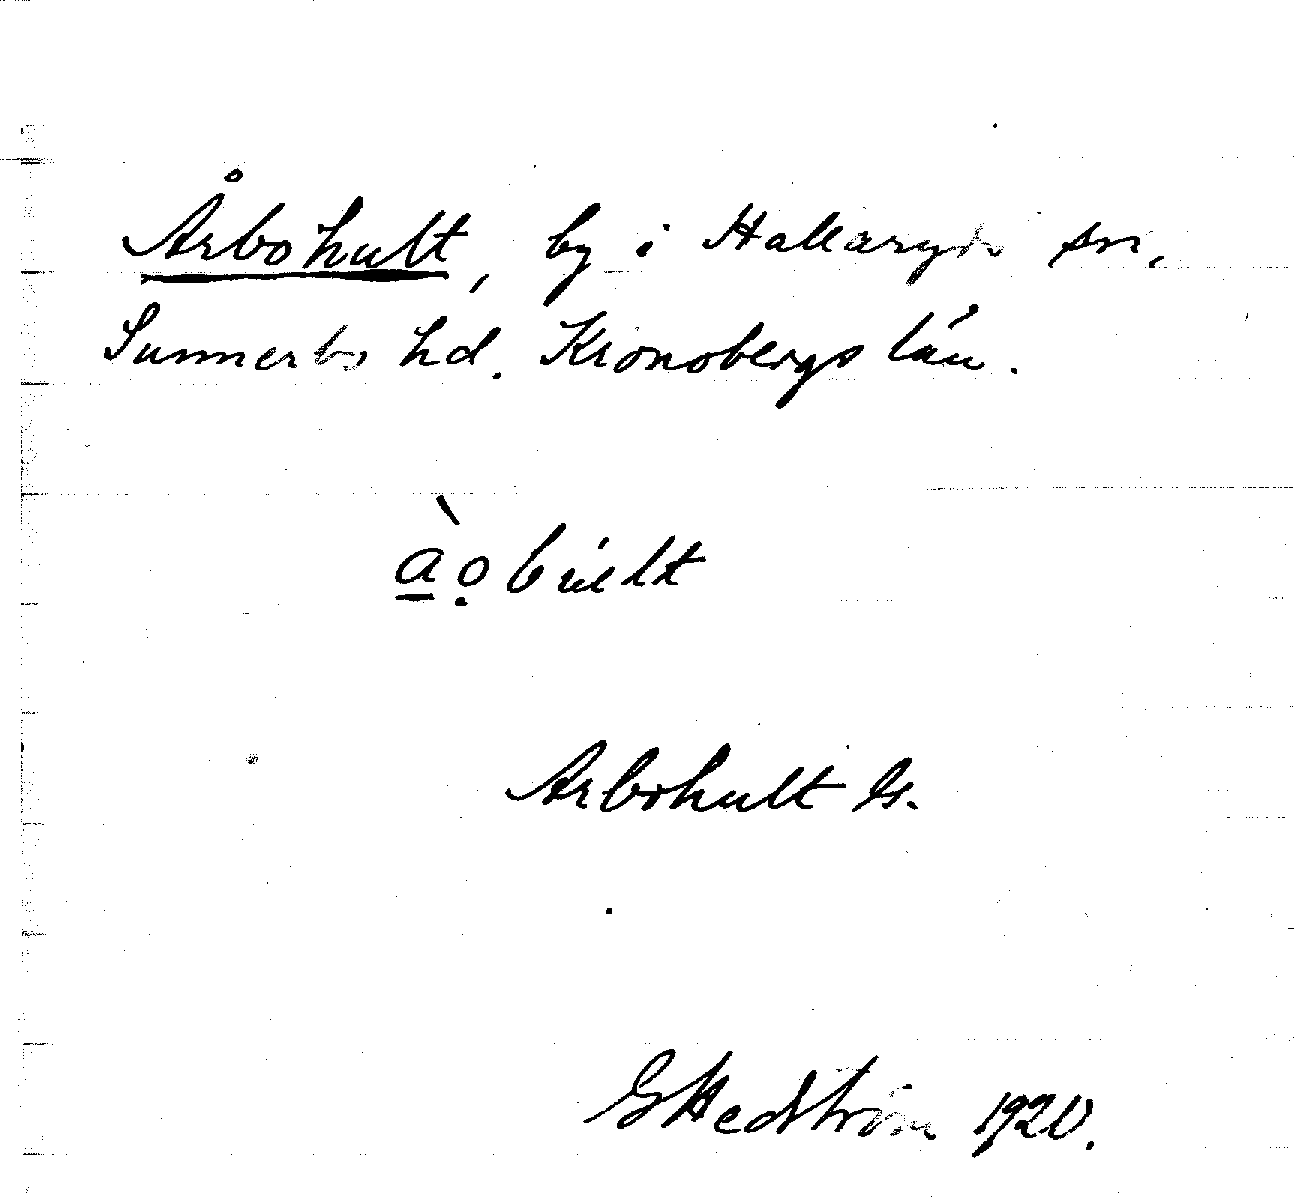 Årbohult, by i Hallaryds sn,
Sunnerbo hd. Kronobergs län.
Arbohult G.
GHedström 1920.